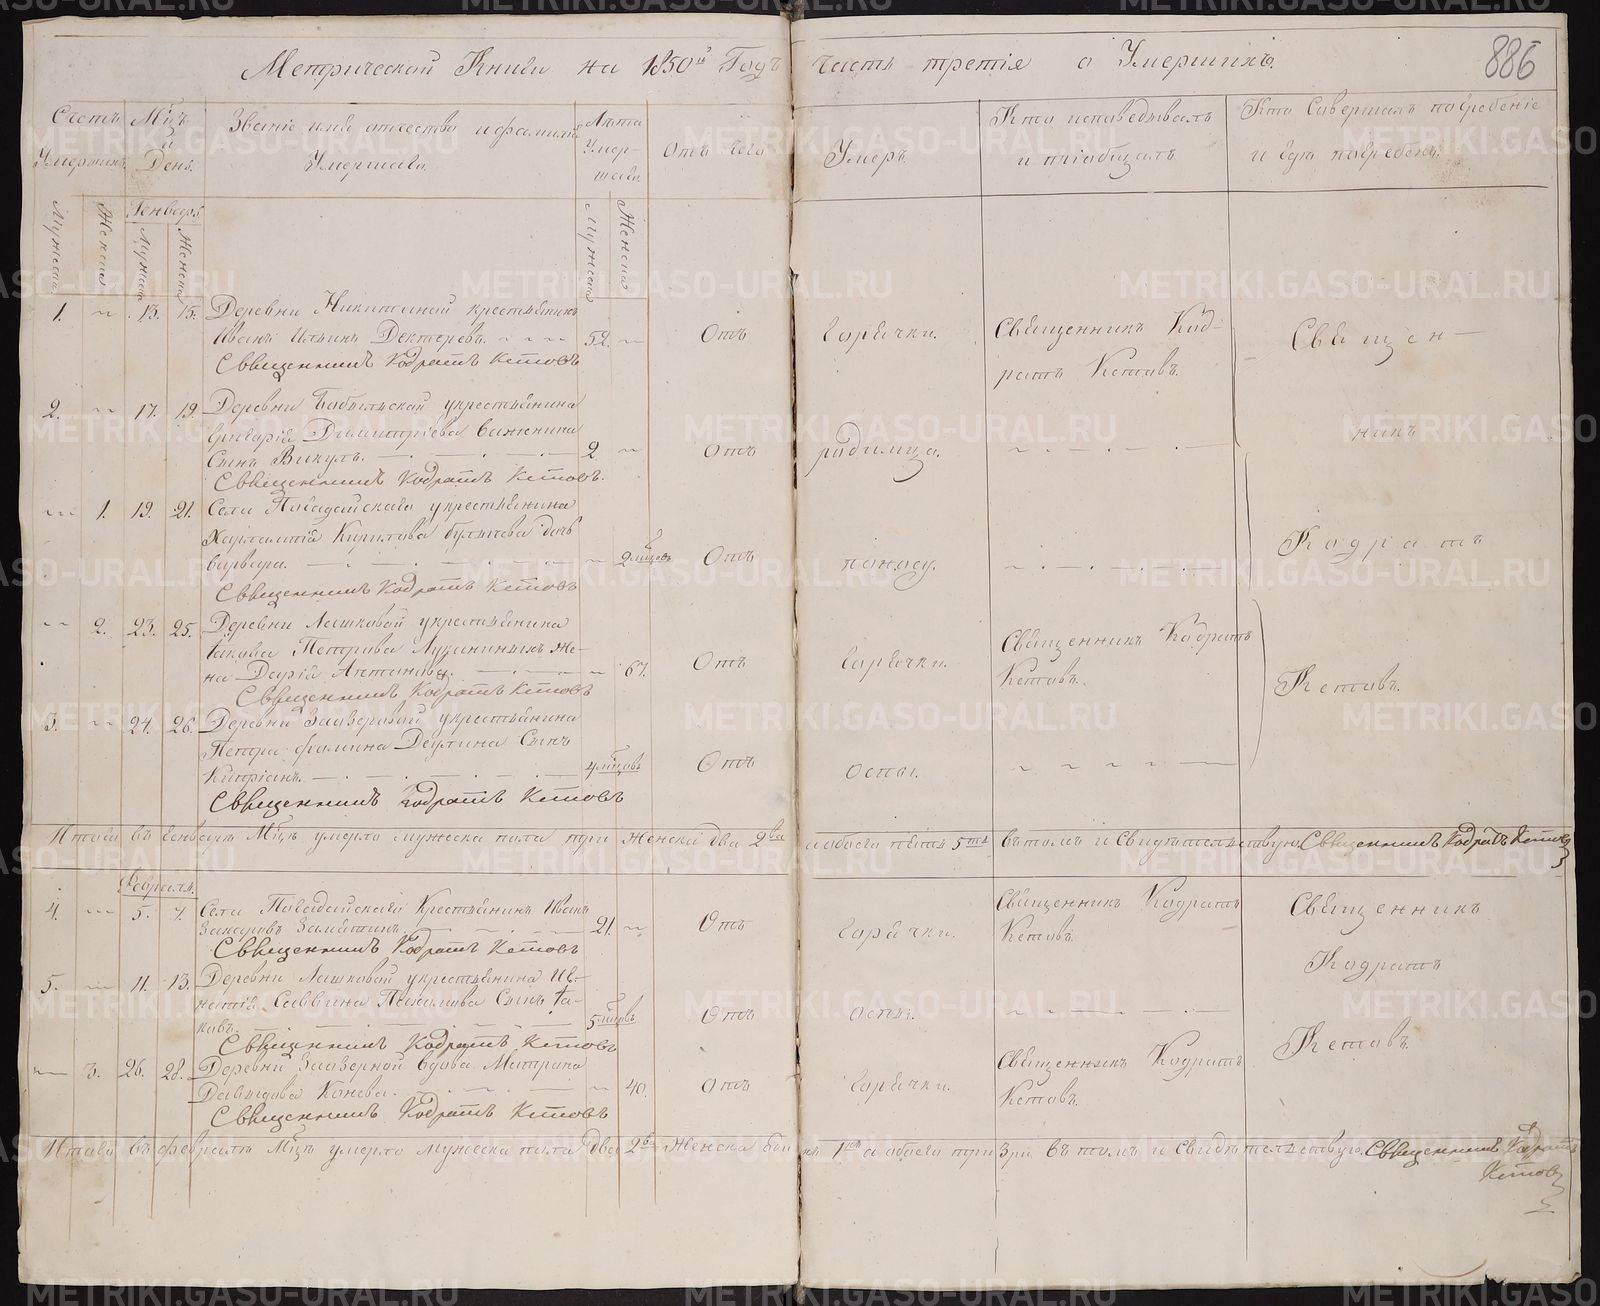 Метрической Книги на 1850й Годъ часть третія о Умершихъ.
886
Счетъ Умершихъ
Мцъ и День.
Званіе имѣ отчество и фамилія Умершаго.
Лѣта Умер-шаго
Отъ чего
Умеръ.
Кто исповедывалъ и пріобщалъ
Кто Совершалъ погребеніе и гдѣ погребенъ.
Мужеска
Женска
Генваръ
Мужеска
Женска
Мужеска
Женска
1. 13. 15. Деревни Никитиной крестьянинъ
Иванъ Ильинъ Дектеревъ. 52. Отъ горячки. Священникъ Код-
ратъ Кетовъ.
Священникъ Кодратъ Кетовъ
Священ-
никъ
Кодратъ
Кетовъ.
2. 17. 19. Деревни укрестьянина
Григорія Димитріева Важенина
Сынъ Викулъ. 2 Отъ родимца.
Священникъ Кодратъ Кетовъ.
1. 19. 21. Села укрестьянина
Харлампія Кирилова дочь
Варвара. 2 мцовъ Отъ поносу.
Священникъ Кодратъ Кетовъ
2. 23. 25. Деревни Лошковой укрестьянина
Іакова Петрова Лукиныхъ Же-
на Дарія Антонова. 67. Отъ горячки. Священникъ Кодратъ
Кетовъ.
Священникъ Кодратъ Кетовъ
3. 24. 26. Деревни Заозерной укрестьянина
Петра Фомина Деулина Сынъ
Кипріанъ. 4 мцовъ Отъ оспы.
Священникъ Кодратъ Кетовъ
Итого въ Генварѣ Мцѣ умерло мужеска пола три Женска два 2ва а обоего пять 5ть въ томъ и Свидѣтельствую. Священникъ Кодратъ Кетовъ
Февраль.
4. 5. 7. Села Крестьянинъ Иванъ
Захаровъ Замятинъ. 21. Отъ горячки. Священникъ Кодратъ
Кетовъ.
Священникъ Кодратъ Кетовъ
Священникъ
Кодратъ
Кетовъ.
5. 11. 13. Деревни Лошковой укрестьянина Иг-
натія Саввина Сынъ Іа-
ковъ. 5 мцовъ Отъ оспы.
Священникъ Кодратъ Кетовъ
3. 26. 28. Деревни Заозерной вдова Матрона
Давыдова Конева. 40. Отъ горячки. Священникъ Кодратъ
Кетовъ.
Священникъ Кодратъ Кетовъ
Итого въ февралѣ Мцѣ умерло мужеска пола два 2в Женска одна 1на а обоего три 3ри въ томъ и Свидѣтельствую. Священникъ Кодратъ
Кетовъ